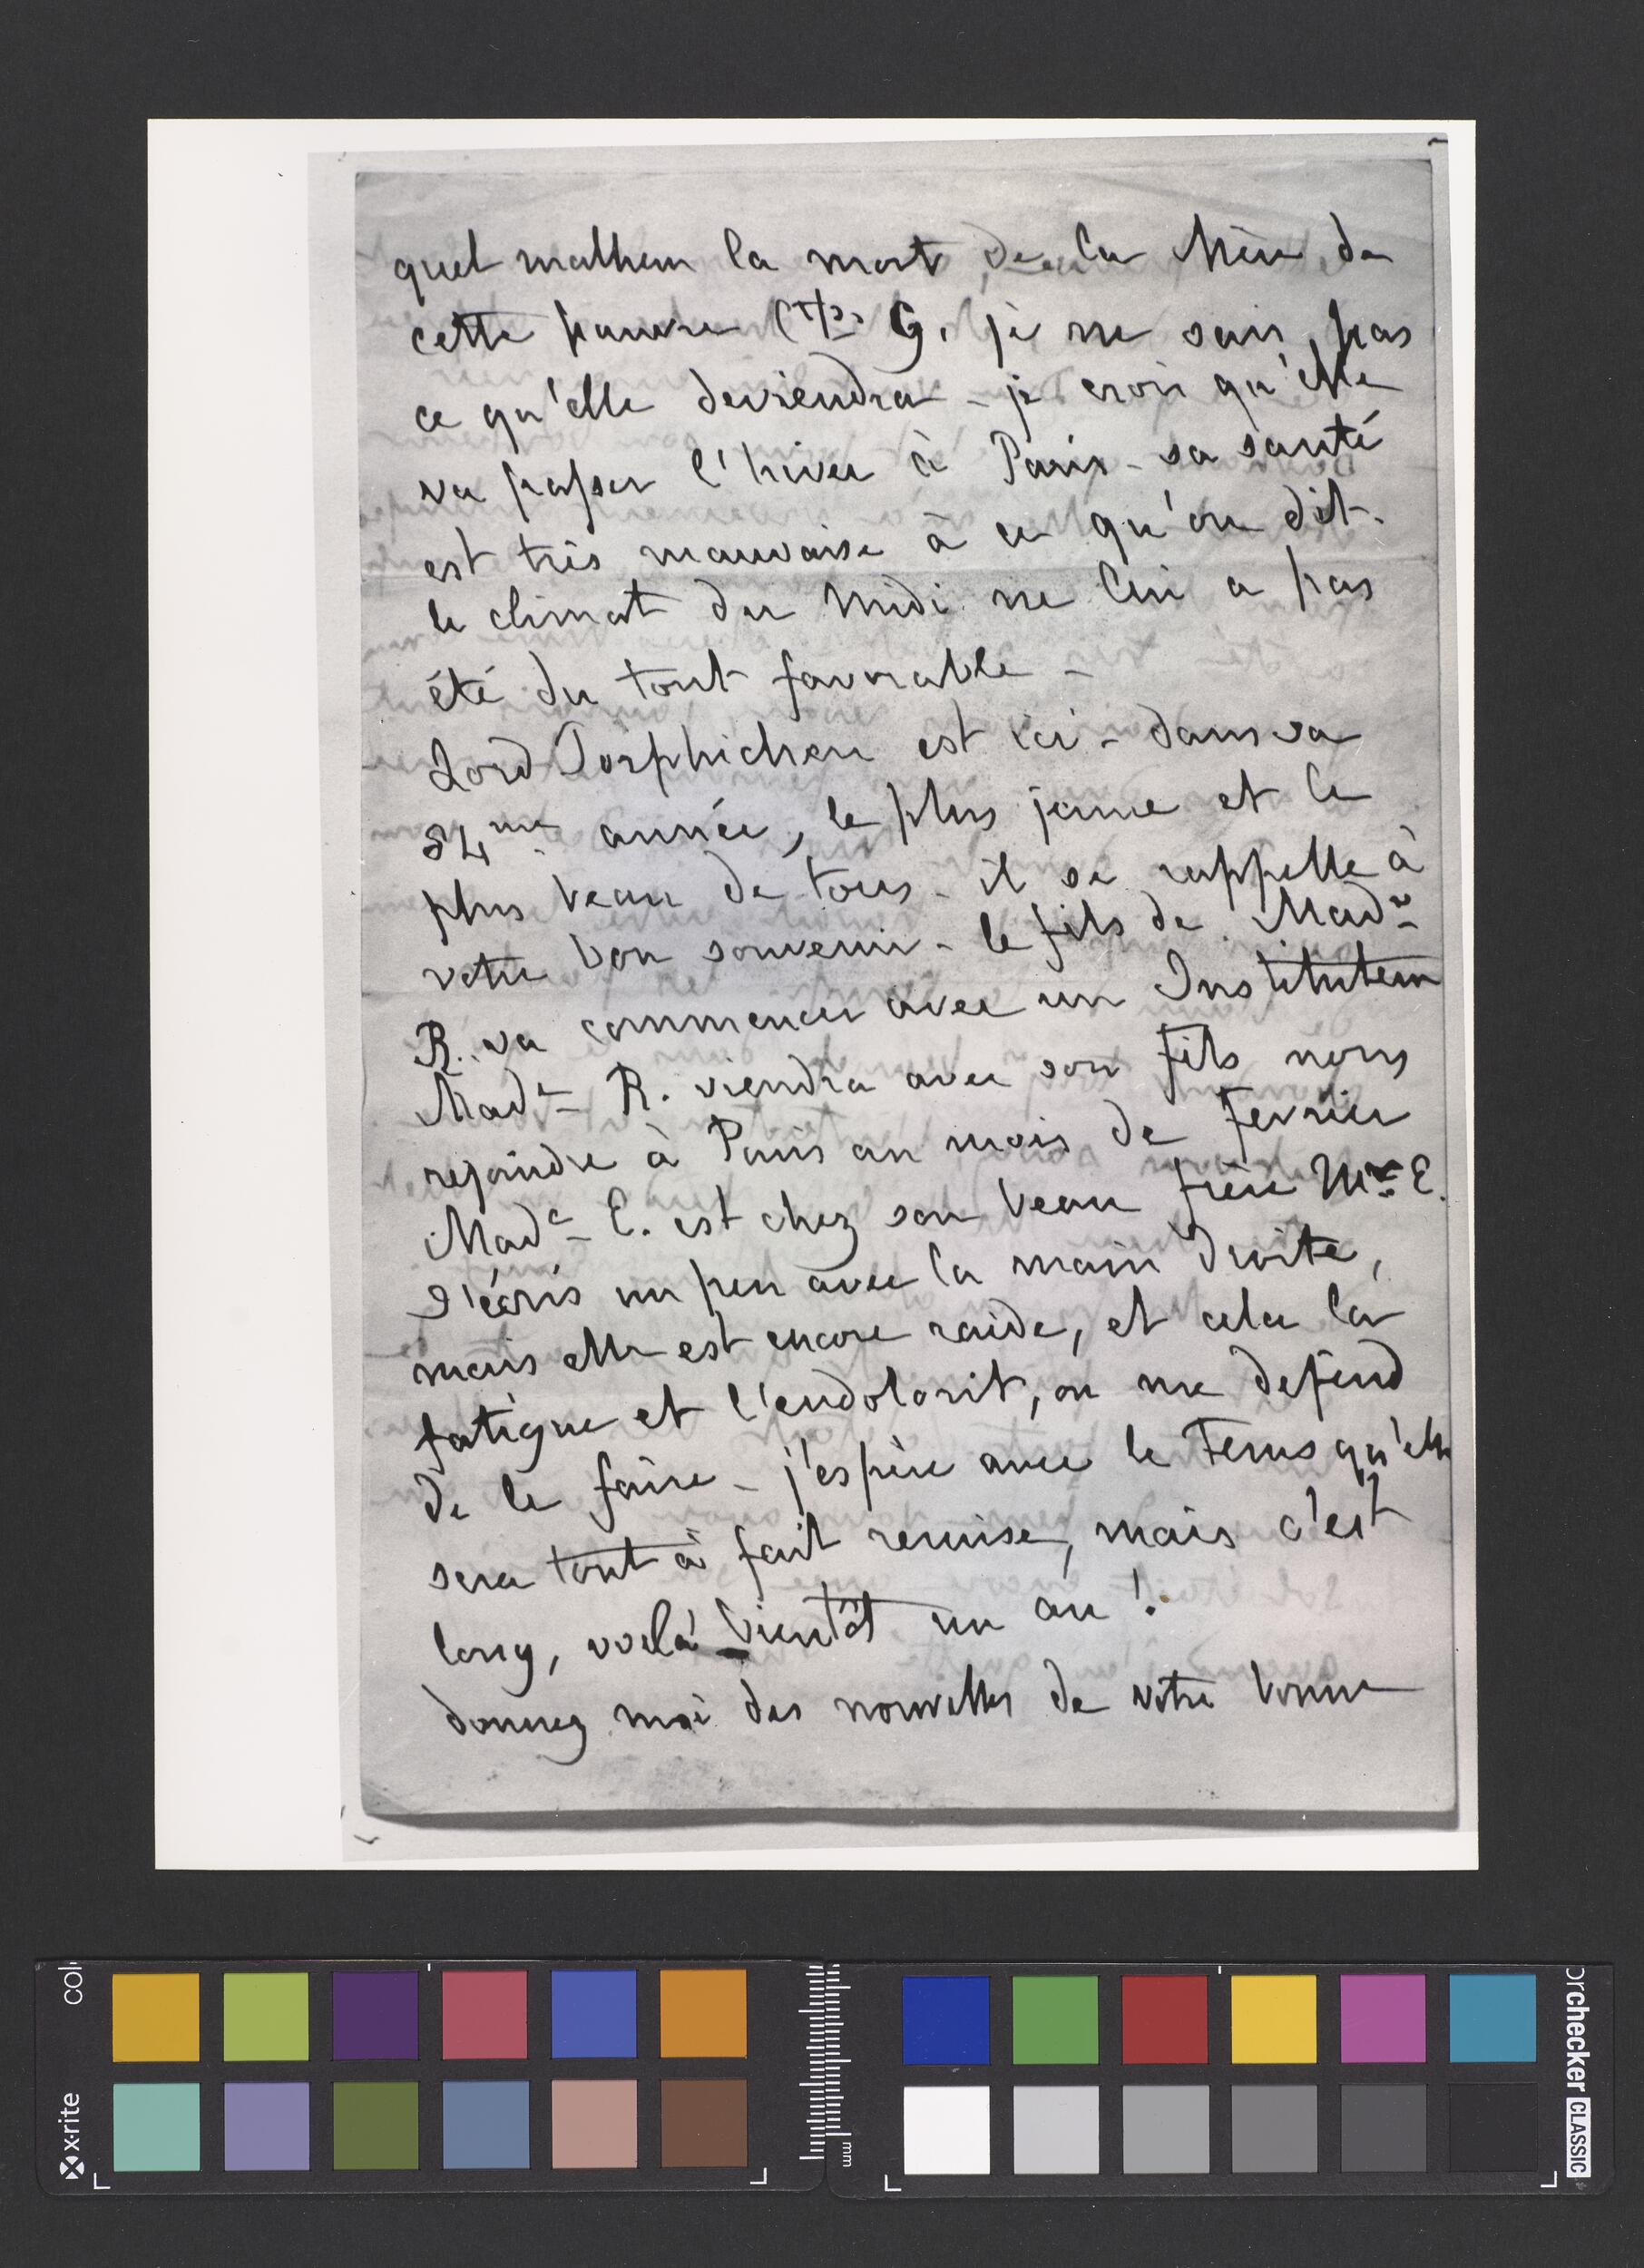 quel malheur la mort de la Mère de
cette pauvre Ctsse G. je ne sais pas
ce qu'elle deviendra – je crois qu'elle
va passer l'hiver à Paris – sa santé
est très mauvaise à ce qu'on dit.
le climat du Midi ne lui a pas
été du tout favorable –
Lord Torphichen est ici – dans sa
84me année, le plus jeune et le
plus beau de tous – il se rappelle à
votre bon souvenir – le fils de Made
R. va commencer avec un Instituteur
Made R. viendra avec son fils nous
rejoindre à Paris au mois de Fevrier
Made E. est chez son beau frère Mr E.
J'écris un peu avec la main droite,
mais elle est encore raide, et cela la
fatigue et l'endolorit, on me defend
de le faire – j'espère avec le Tems qu'elle
sera tout à fait remise, mais c'est
long, voilà bientôt un an !
donnez moi des nouvelles de votre bonne
x-rite
col
mm
orchecker CLASSIC